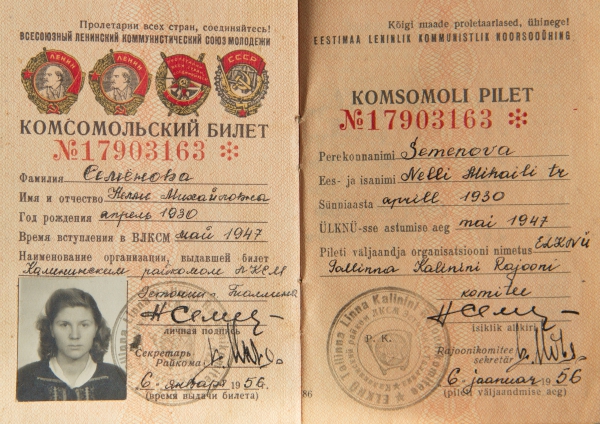 Пролетарии всех стран, соединяйтесь!
ВСЕСОЮЗНЫЙ ЛЕНИНСКИЙ КОММУНИСТИЧЕСКИЙ СОЮЗ МОЛОДЕЖИ
ЛЕНИН
ЛЕНИН
СССР
КОМСОМОЛЬСКИЙ БИЛЕТ
№17903163
Фамилия Семёнова
Имя и отчество Нелли Михайловна
Год рождения апрель 1930
Время вступления в ВЛКСМ май 1947
Наименование организации, выдавшей билет
Калининским райкомом ЛКСМ
Эстонии г. Таллина
Н Семен
личная подпись
Секретарь
Райкома
6 января 1956
(время выдачи билета)
Kõigi maade proletaarlased, ühinege!
EESTIMAA LENINLIK KOMMUNISTLIK NOORSOOÜHING
KOMSOMOLI PILET
№17903163
Perekonnanimi Semenova
Ees- ja isanimi Nelli Mihaili tr
Sünniaasta aprill 1930
ÜLKNÜ-sse astumise aeg mai 1947
Pileti väljaandja organisatsiooni nimetus ELKNÜ
Tallinna Kalinini Rajooni
komitee
Н Семен
isiklik allkiri
P. K.
Rajoonikomitee
sekretär
6. jaanuar 1956
(pileti väljaandmise aeg)
86